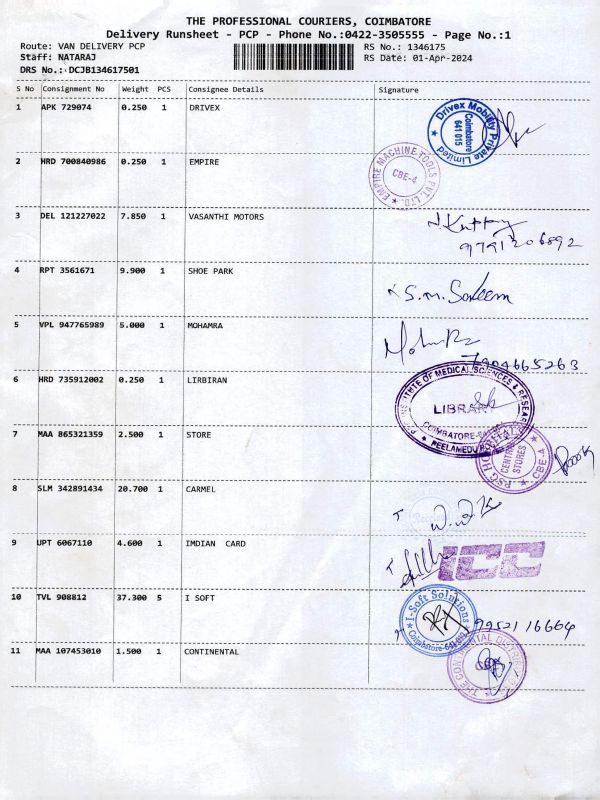 THE PROFESSIONAL COURIERS, COIMBATORE
Delivery Runsheet - PCP - Phone No.:0422-3505555 - Page No.:1
Route: VAN DELIVERY PCP RS No.: 1346175
Staff: NATARAJ RS Date: 01-Apr-2024
DRS No.: DCJB134617501
S No Consignment No Weight PCS Consignee Details Signature
1 APK 729074 0.250 1 DRIVEX
Drivex Mobility Private Limited
Coimbatore
641 015
2 HRD 700840986 0.250 1 EMPIRE
EMPIRE MACHINE TOOLS PVT. LTD.
CBE-4
3 DEL 121227022 7.850 1 VASANTHI MOTORS
9791206892
4 RPT 3561671 9.900 1 SHOE PARK
S.M. Saleem
5 VPL 947765989 5.000 1 MOHAMRA
7904665263
6 HRD 735912002 0.250 1 LIRBIRAN
INSTITUTE OF MEDICAL SCIENCES & RESEARCH
LIBRARY
COIMBATORE
PEELAMEDU
7 MAA 865321359 2.500 1 STORE
PSG HOSPITALS
CENTRAL
STORES
CBE-4
8 SLM 342891434 20.700 1 CARMEL
9 UPT 6067110 4.600 1 IMDIAN CARD
ICC
10 TVL 908812 37.300 5 I SOFT
I-Soft Solutions
Coimbatore-641
9952116664
11 MAA 107453010 1.500 1 CONTINENTAL
THE CONTINENTAL